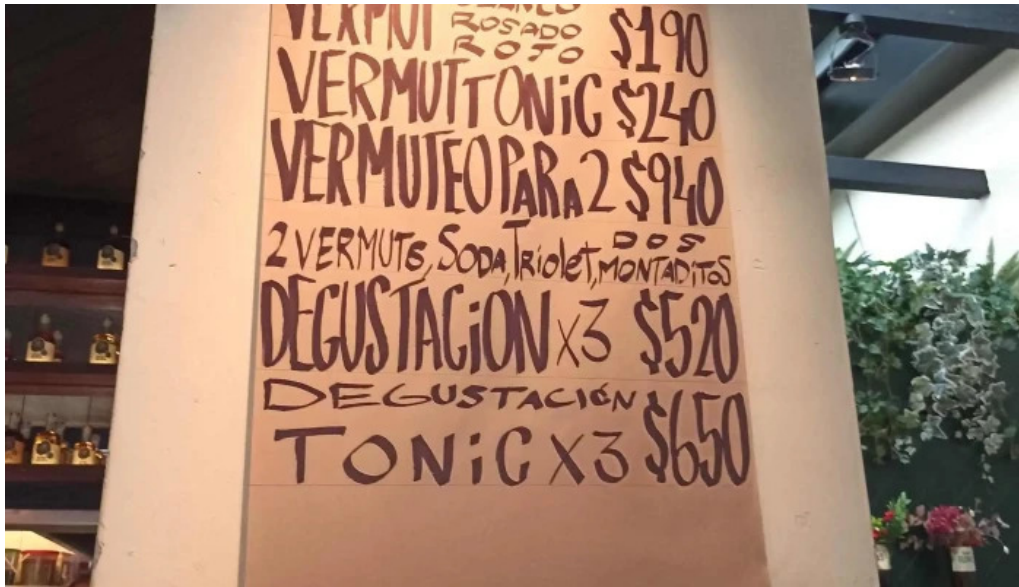 VERMUT ROSADO $190
ROTO
VERMUT TONiC $240
VERMUTEO PARA 2 $940
2 VERMUTS, SODA, TRiOLET, DOS MONTADITOS
DEGUSTACiON X3 $520
DEGUSTACIÓN
TONiC X3 $650